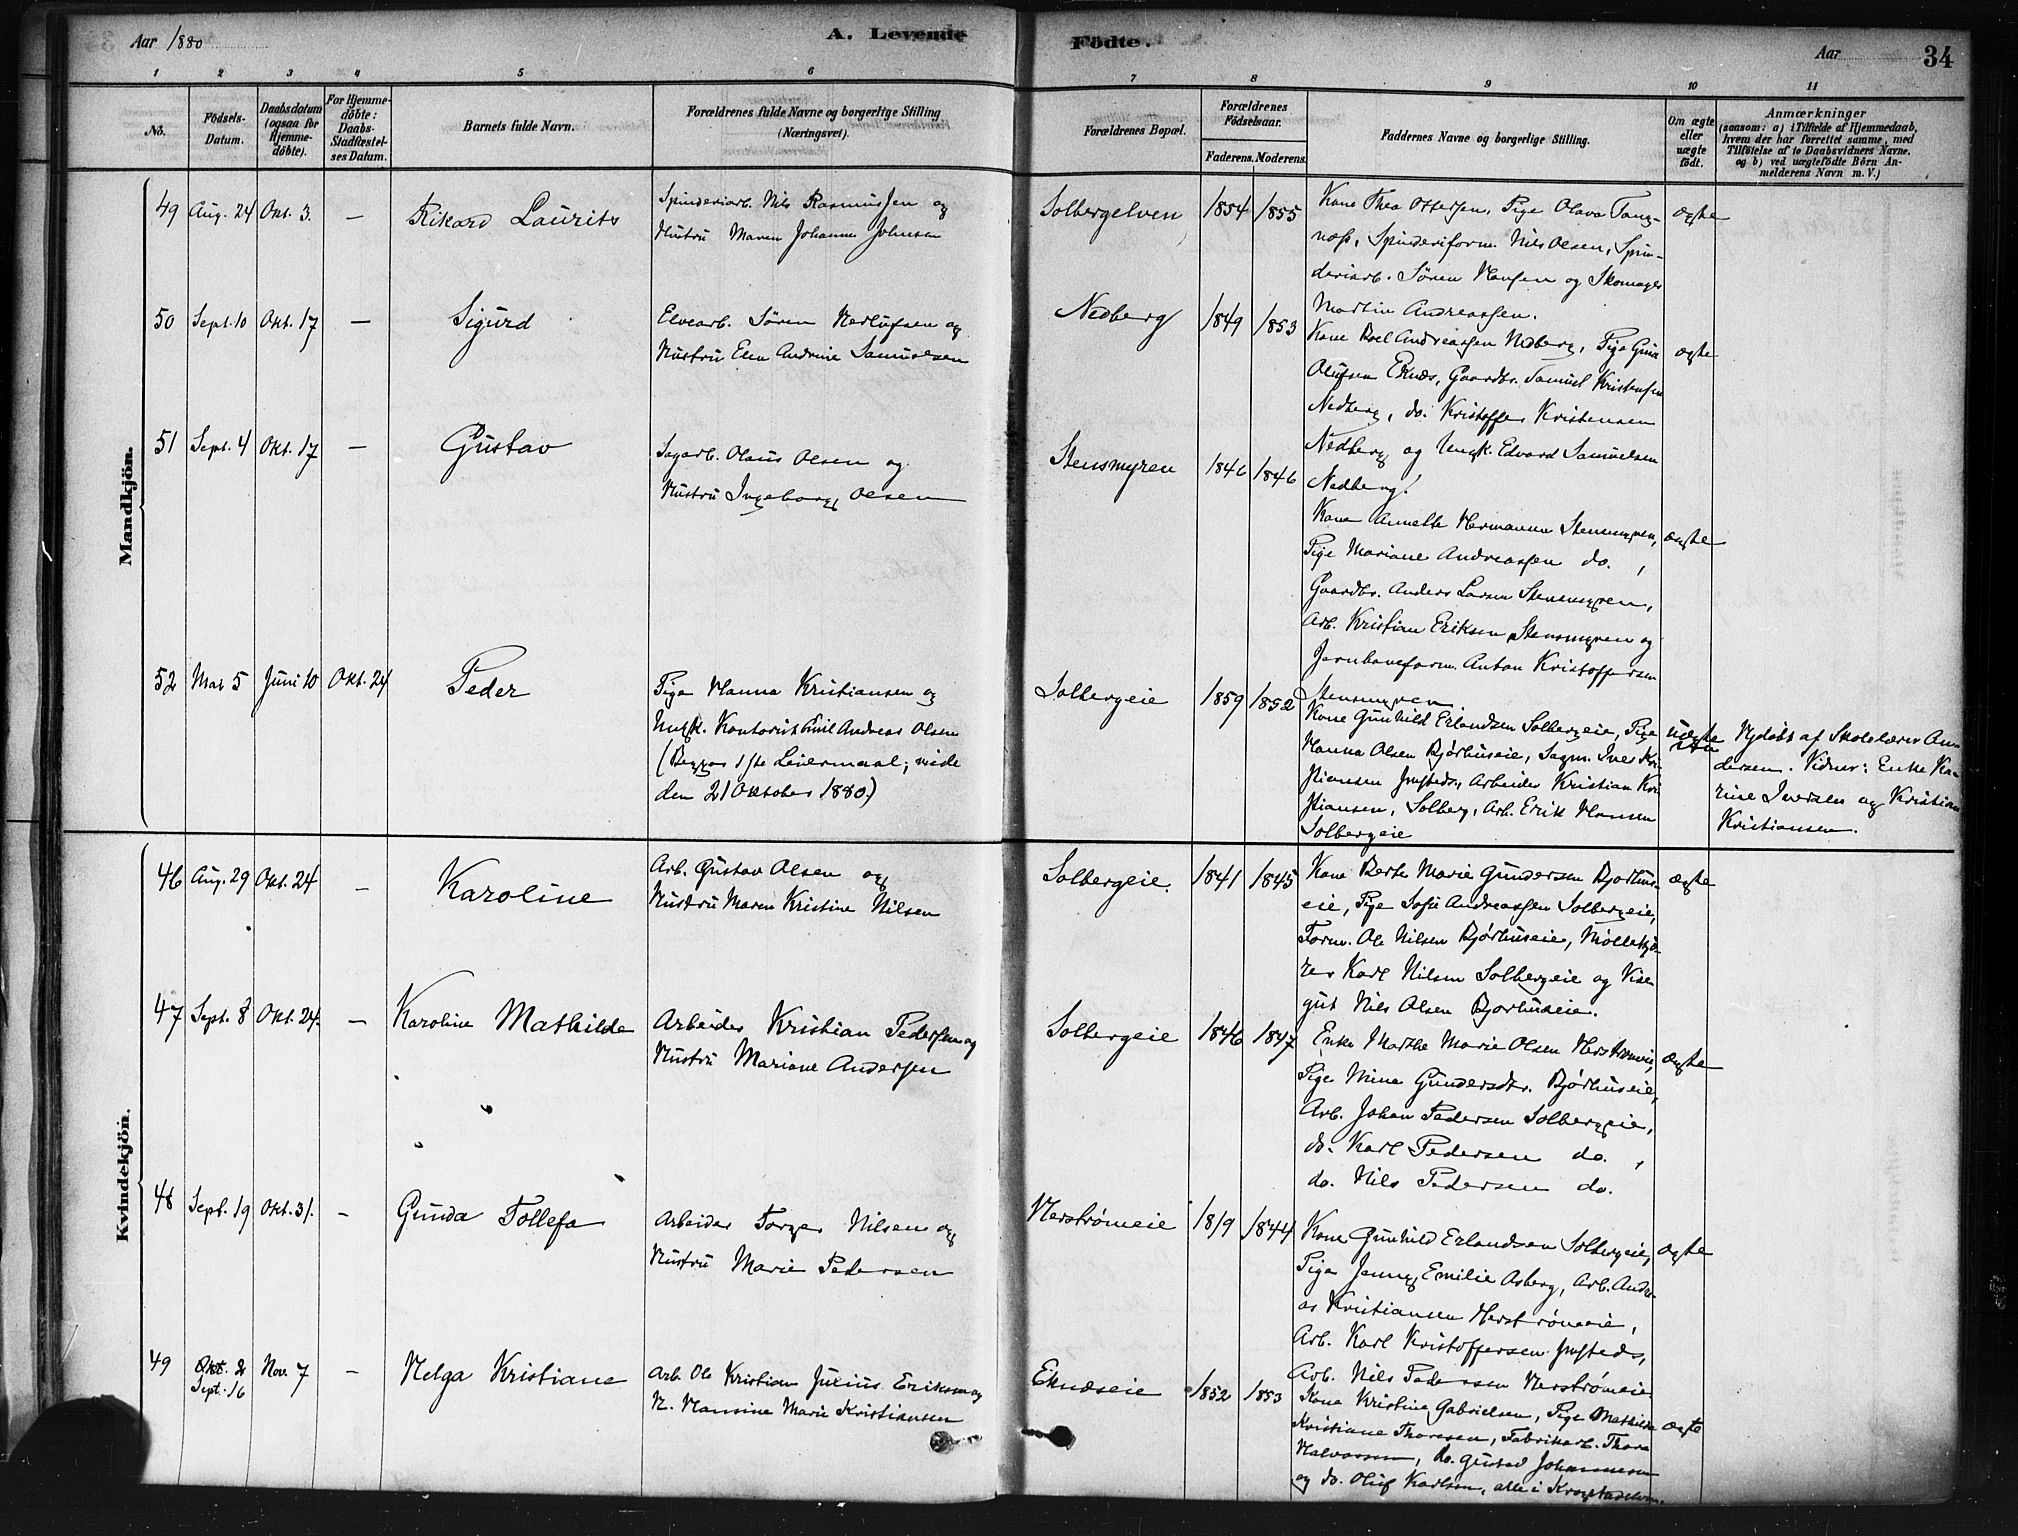 Aar 1880
A. Levende
Födte.
Aar
34
1 2 3 4 5 6 7 8 9 10 11
No.
Födsels-
Datum.
Daabsdatum
(ogsaa for
Hjemme-
döbte).
For Hjemme-
döbte:
Daabs-
Stadfæstel-
ses Datum.
Barnets fulde Navn.
Forældrenes fulde Navne og borgerlige Stilling
(Næringsvei).
Forældrenes Bopæl.
Forældrenes
Födselsaar.
Faderens. Moderens.
Faddernes Navne og borgerlige Stilling.
Om ægte
eller
uægte
födt.
Anmærkninger
(saasom: a) i Tilfælde af Hjemmedaab,
hvem der har forrettet samme, med
Tilföielse af to Daabsvidners Navne,
og b) ved uægtefödte Börn An-
melderens Navn m. V.)
Mandkjön.
49 Aug. 24 Okt. 3. — Rikard Laurits
Spinderiarb. Nils Rasmussen og
Hustru Maren Johanne Johnsen
Solbergelven 1854 1855
Kone Thea Ottersen, Pige Olava Tang-
næss, Spinderiform. Nils Olsen, Spin-
deriarb. Sören Hansen og Skomager
Martin Andreassen.
ægte
50 Sept. 10 Okt. 17 — Sigurd
Elvearb. Sören Hedlufsen og
Hustru Elen Andrine Samuelsen
Nedberg 1849 1853
Kone Boel Andreassen Nedberg, Pige Gina
Olufsen Eknæs, Gaardbr. Samuel Kristensen
Nedberg, do. Kristoffer Kristensen
Nedberg og Ungk. Edvard Samuelsen
Nedberg.
ægte
51 Sept. 4 Okt. 17 — Gustav
Sagarb. Olaus Olsen og
Hustru Ingeborg Olsen
Stensmyren 1846 1846
Kone Annette Hermansen Stensmyren,
Pige Mariane Andreassen do.,
Gaardbr. Anders Larsen Stensmyren,
Arb. Kristian Eriksen Stensmyren og
Jernbaneform. Anton Kristoffersen
Stensmyren.
ægte
52 Mai 5 Juni 10 Okt. 24 Peder
Pige Hanna Kristiansen og
Ungk. Kontorist Emil Andreas Olsen
(Begges 1ste Leiermaal; viede
den 21 Oktober 1880.)
Solbergeie 1859 1852
Kone Gunhild Erlandsen Solbergeie, Pige
Hanna Olsen Bjørhuseie, Sagm. Iver Kri-
stiansen Impsteds, Arbeider Kristian Kri-
stiansen, Solberg, Arb. Erik Hansen
Solbergeie
uægte
Nydøbt af Skolelærer An-
dersen. Vidner: Enke Ka-
rine Iversen og Kristian
Kristiansen.
Kvindekjön.
46 Aug. 29 Okt. 24 — Karoline
Arb. Gustav Olsen og
Hustru Maren Kristine Nilsen
Solbergeie. 1841 1845
Kone Berte Marie Gundersen Bjørhus-
eie, Pige Sofie Andreassen Solbergeie,
Form. Ole Nilsen Bjørhuseie, Møllekjø-
rer Karl Nilsen Solbergeie og Vise-
gut Nils Olsen Bjørhuseie.
ægte
47 Sept. 8 Okt. 24. — Karoline Mathilde
Arbeider Kristian Pedersen og
Hustru Mariane Andersen
Solbergeie 1846 1847
Enke Marthe Marie Olsen Herstrømeie,
Pige Mina Gundersdtr. Bjørhuseie,
Arb. Johan Pedersen Solbergeie,
do. Karl Pedersen do.,
do. Nils Pedersen do.
ægte
48 Sept. 19 Okt. 31. — Gunda Tollefa
Arbeider Torger Nilsen og
Hustru Marie Pedersen
Herstrømeie 1819 1844
Kone Gunhild Erlandsen Solbergeie,
Pige Jenny Emilie Asberg, Arb. Andre-
as Kristiansen Herstrømeie,
Arb. Karl Kristoffersen Impsteds,
Arb. Nils Pedersen Herstrømeie
ægte
49 Okt. 2 Sept. 16 Nov. 7 — Helga Kristiane
Arb. Ole Kristian Julius Eriksen og
H. Hansine Marie Kristiansen
Eknæseie 1852 1853
Kone Kristine Gabrielsen, Pige Mathilde
Kristiane Thoresen, Fabrikarb. Thore
Halvorsen, do. Gustav Johannesen
og do. Oluf Karlsen, alle i Krogstadelven.
ægte